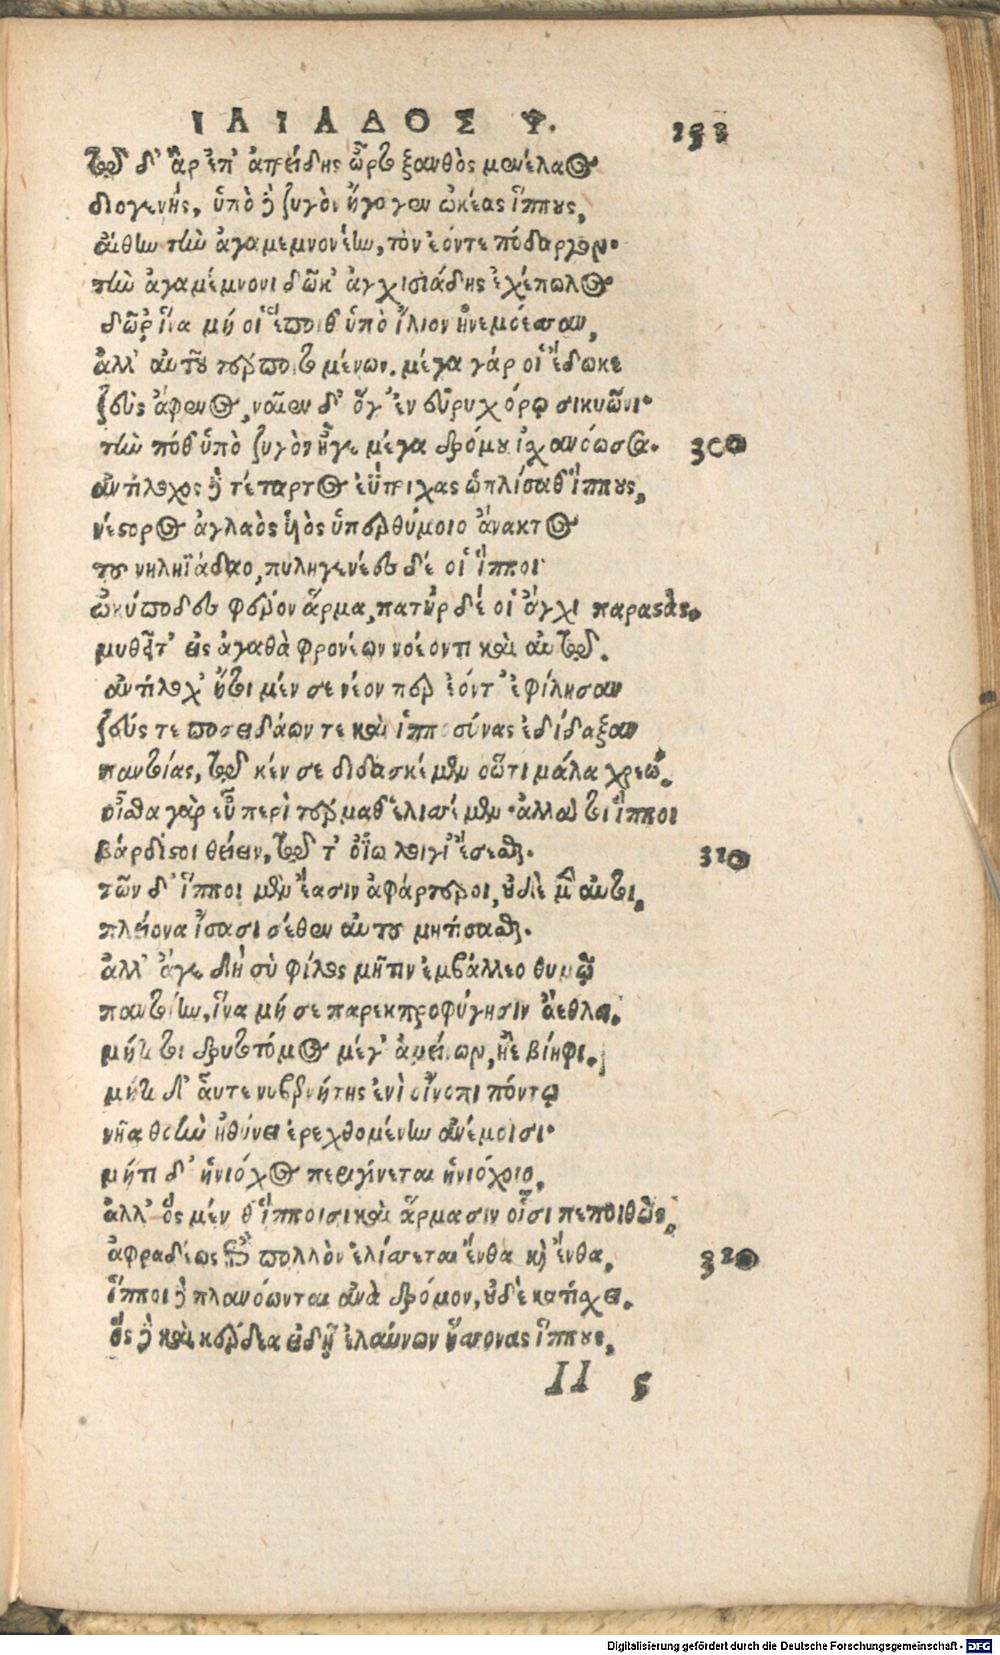 ΙΛΙΑΔΟΣ Ψ. 253
τῷ δ' ἂρ ἐπ' ἀτρείδης ὦρτο ξανθὸς μενέλαος
διογενὴς, ὑπὸ δὲ ζυγὸν ἤγαγεν ὠκέας ἵππους,
αἴθην τὴν ἀγαμεμνονέην, τὸν ἑόν τε πόδαργον·
τὴν ἀγαμέμνονι δῶκ' ἀγχισιάδης ἐχέπωλος
δῶρ' ἵνα μή οἱ ἕποιθ' ὑπὸ ἴλιον ἠνεμόεσσαν,
ἀλλ' αὐτοῦ τέρποιτο μένων. μέγα γάρ οἱ ἔδωκε
ζεὺς ἄφενος, ναῖεν δ' ὅγ' ἐν εὐρυχόρῳ σικυῶνι·
τὴν πόθ' ὑπὸ ζυγὸν ἦγε μέγα δρόμου ἰχανόωσαν. 300
ἀντίλοχος δὲ τέταρτος ἐΰτριχας ὡπλίσαθ' ἵππους,
νέστορος ἀγλαὸς υἱὸς ὑπερθύμοιο ἄνακτος
τοῦ νηληϊάδαο, πυληγενέες δέ οἱ ἵπποι
ὠκύποδες φέρον ἅρμα, πατὴρ δέ οἱ ἄγχι παραστὰς.
μυθεῖτ' εἰς ἀγαθὰ φρονέων νοέοντι καὶ αὐτῷ.
ἀντίλοχ' ἤτοι μέν σε νέον περ ἐόντ' ἐφίλησαν
ζεύς τε ποσειδάων τε καὶ ἱπποσύνας ἐδίδαξαν
παντοίας, τῷ κέν σε διδασκέμεν οὔτι μάλα χρεώ.
οἶσθα γὰρ εὖ περὶ τέρμαθ' ἑλισσέμεν· ἀλλά τοι ἵπποι
βάρδιστοι θείειν, τῷ τ' οἴω λοίγι' ἔσεσθαι. 310
τῶν δ' ἵπποι μὲν ἔασιν ἀφάρτεροι, οὐδὲ μὲν αὐτοι,
πλείονα ἴσασι σέθεν αὐτοῦ μητίσασθαι.
ἀλλ' ἄγε δὴ σὺ φίλος μῆτιν ἐμβάλλεο θυμῷ
παντοίην, ἵνα μή σε παρεκπροφύγησιν ἄεθλα.
μήτι τοι δρυτόμος μέγ' ἀμείνων, ἠὲ βίηφι.
μήτι δ' αὖτε κυβερνήτης ἐνὶ οἴνοπι πόντῳ
νῆα θοὴν ἰθύνει ἐρεχθομένην ἀνέμοισι·
μήτι δ' ἡνίοχος περιγίνεται ἡνιόχοιο,
ἀλλ' ὃς μέν θ' ἵπποισι καὶ ἅρμασιν οἷσι πεποιθὼς,
ἀφραδέως ἐπὶ πολλὸν ἑλίσσεται ἔνθα καὶ ἔνθα, 320
ἵπποι δὲ πλανόωνται ἀνὰ δρόμον, οὐδὲ κατίσχει.
ὃς δὲ καὶ κέρδεα εἰδῇ ἐλαύνων ἥσσονας ἵππους,
II 5
Digitalisierung gefördert durch die Deutsche Forschungsgemeinschaft - DFG